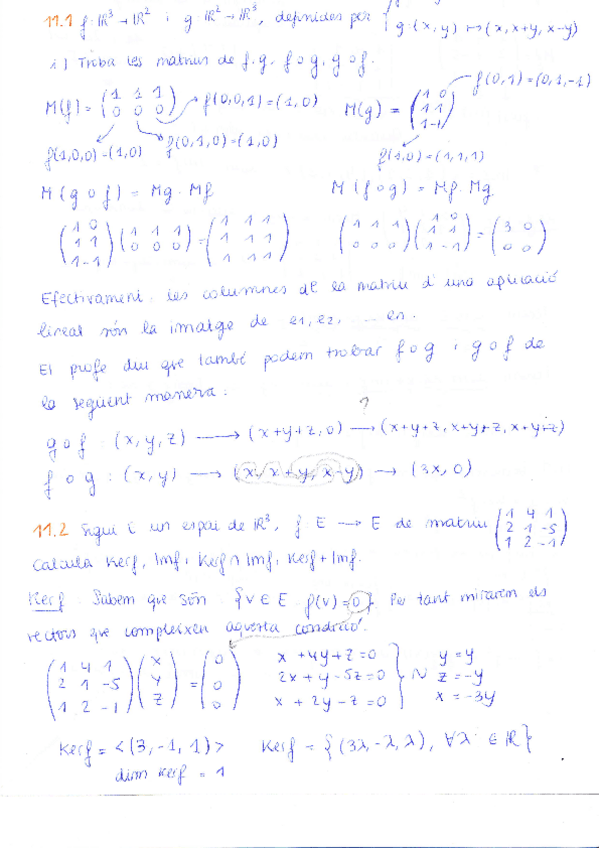 11.1 f: ℝ³→ℝ² i g: ℝ²→ℝ³, definides per { g(x,y) ↦ (x, x+y, x-y)
i) Troba les matrius de f, g, f∘g, g∘f.
M(f) = (1 1 1 / 0 0 0) f(0,0,1) = (1,0) M(g) = (1 0 / 1 1 / 1 -1) f(0,1) = (0,1,-1)
f(1,0,0) = (1,0) f(0,1,0) = (1,0) f(1,0) = (1,1,1)
M(g∘f) = Mg · Mf M(f∘g) = Mf · Mg
(1 0 / 1 1 / 1 -1)(1 1 1 / 0 0 0) = (1 1 1 / 1 1 1 / 1 1 1) (1 1 1 / 0 0 0)(1 0 / 1 1 / 1 -1) = (3 0 / 0 0)
Efectivament, les columnes de la matriu d'una aplicació
lineal són la imatge de e1, e2, ... en.
El profe diu que també podem trobar f∘g i g∘f de
la següent manera:
?
g∘f : (x, y, z) → (x+y+z, 0) → (x+y+z, x+y+z, x+y+z)
f∘g : (x, y) → (x, x+y, x-y) → (3x, 0)
11.2 Sigui E un espai de ℝ³, f: E → E de matriu (1 4 1 / 2 1 -5 / 1 2 -1)
Calcula Kerf, Imf, Kerf ∩ Imf, Kerf + Imf.
Kerf Sabem que són {v ∈ E f(v) = 0}. Per tant mirarem els
vectors que compleixen aquesta condició.
(1 4 1 / 2 1 -5 / 1 2 -1)(x / y / z) = (0 / 0 / 0) x + 4y + z = 0 } ~ y = y
2x + y - 5z = 0 z = -y
x + 2y - z = 0 x = -3y
Kerf = <(3, -1, 1)> Kerf = {(3λ, -λ, λ), ∀λ ∈ ℝ}
dim Kerf = 1